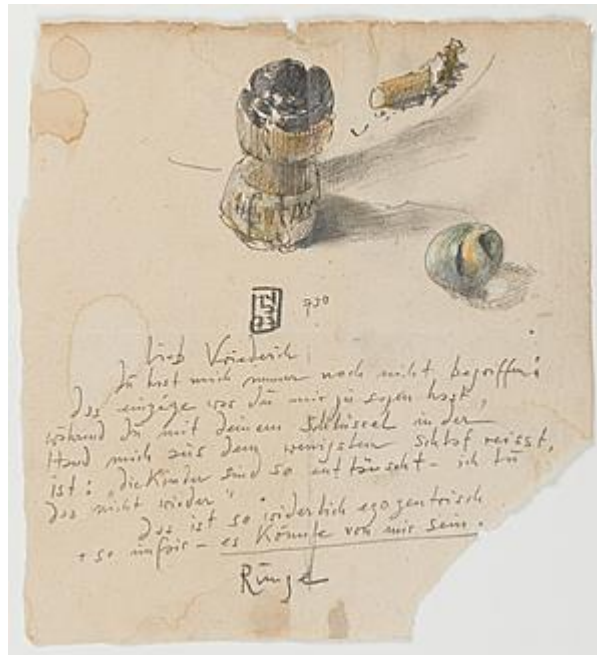 730
Lieb Vriederich
Du hast mich immer noch nicht begriffen!
Das einzige was Du mir zu sagen hast,
während Du mit deinem Schlüssel in der
Hand mich aus dem wenigsten Schlaf reisst,
ist: „die Kinder sind so enttäuscht – ich tu
das nicht wieder“.
Das ist so widerlich egozentrisch
+ so unfair – es könnte von mir sein.